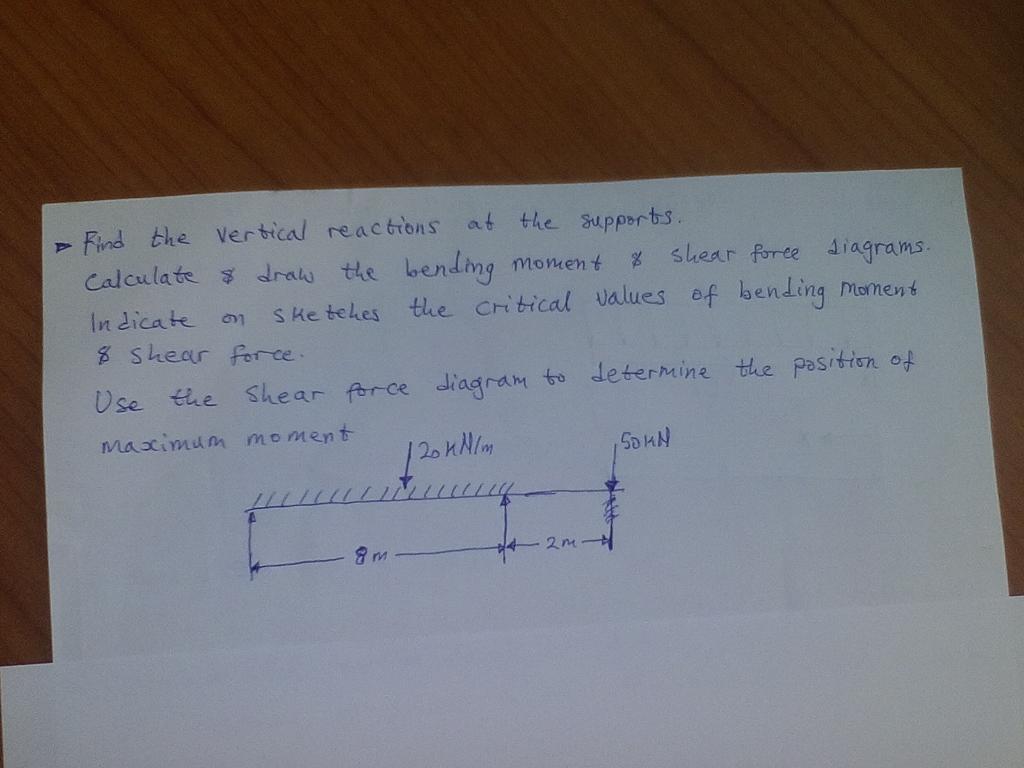 ► Find the vertical reactions at the supports.
Calculate & draw the bending moment & shear force diagrams.
Indicate on sketches the critical values of bending moment
& shear force.
Use the shear force diagram to determine the position of
maximum moment
20 kN/m
50 kN
8 m
2 m